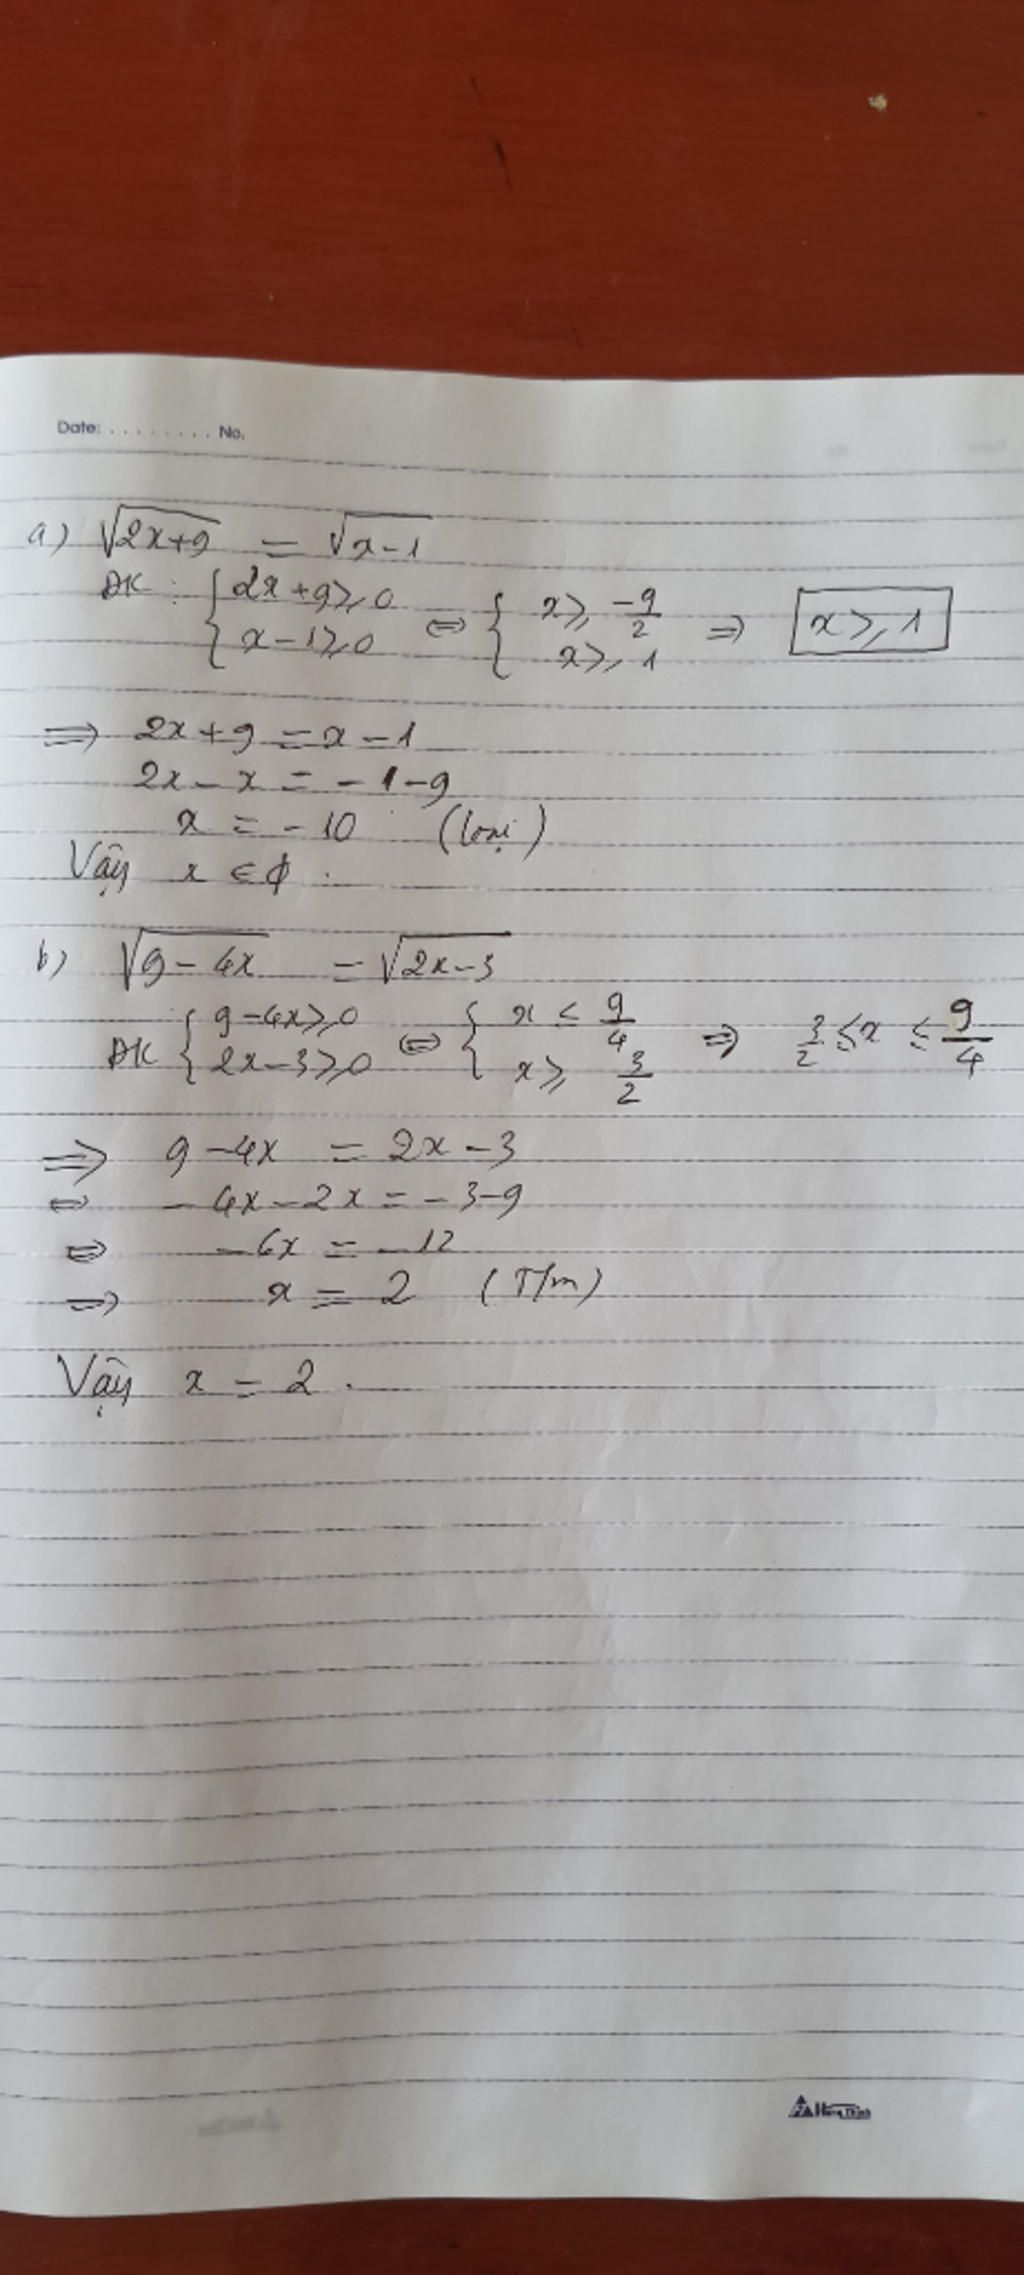 Date: ......... No.
a) √(2x+9) = √(x-1)
ĐK: { 2x+9 ≥ 0 ; x-1 ≥ 0 ⇔ { x ≥ -9/2 ; x ≥ 1 ⇒ x ≥ 1
⇒ 2x+9 = x-1
2x - x = -1-9
x = -10 (loại)
Vậy x ∈ ϕ.
b) √(9-4x) = √(2x-3)
ĐK { 9-4x ≥ 0 ; 2x-3 ≥ 0 ⇔ { x ≤ 9/4 ; x ≥ 3/2 ⇒ 3/2 ≤ x ≤ 9/4
⇒ 9-4x = 2x-3
⇔ -4x-2x = -3-9
⇔ -6x = -12
⇒ x = 2 (T/m)
Vậy x = 2.